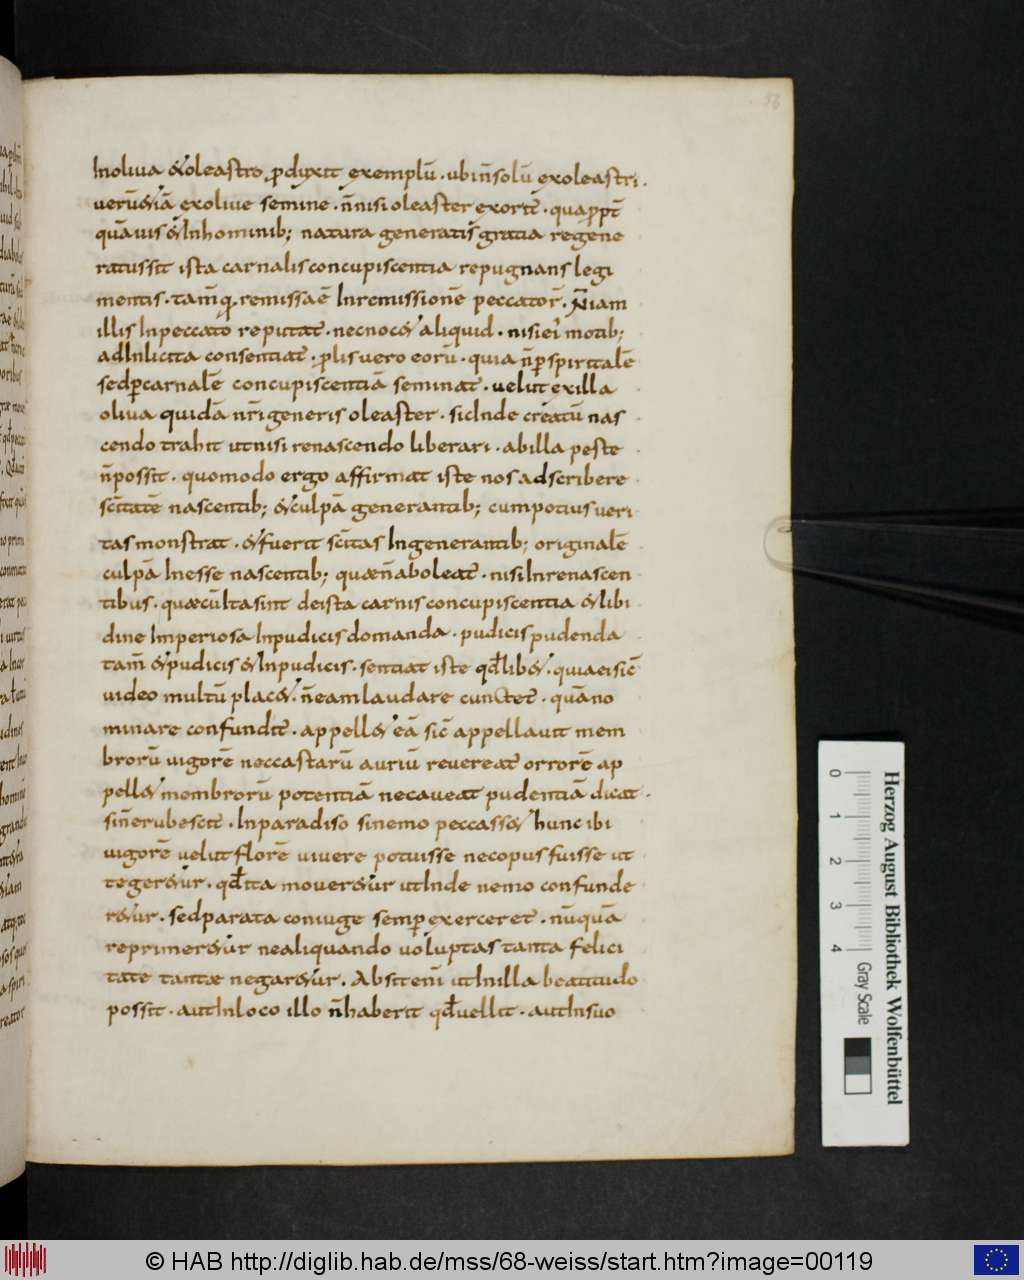 56
Inoliua &oleastro p̱dixit exemplū · ubi ñsolū exoleastri ·
uerū&iā exoliue semine · ñnisi oleaster exorit̄ · quap̱pt̄
quāuis &Inhominib; natura generatis gratia regene
ratussit ista carnalis concupiscentia repugnans legi
mentis · tam̄q; remissaē Inremissionē peccator̄ · N̄iam
illis Inpeccato reputat̄ · necnoc& aliquid · nisiei motib;
adInlicita consentiat̄ · p̱lis uero eorū · quia ñp̱ spiritalē
sedp̱carnalē concupiscentiā seminat̄ · uelut exilla
oliua quidā nr̄i generis oleaster · sicInde creatū nas
cendo trahit utnisi renascendo liberari · abilla peste
ñpossit · quomodo ergo affirmat iste nos adscribere
sc̄itatē nascentib; &culpā generantib; cumpotius ueri
tas monstrat · &fuerit sc̄itas Ingenerantib; originalē
culpā Inesse nascentib; quæñ aboleat̄ · nisiInrenascen
tibus · quæcūltasint deista carnis concupiscentia &libi
dine Imperiosa Inpudicis domanda · pudicis pudenda
tam̄ &pudicis &Inpudicis · sentiat iste qđlib& · quiaeisic̄
uideo multū plac& · ñeam laudare cunctet̄ · quāno
minare confundit̄ · appell& eā sic̄ appellauit mem
brorū uigorē neccastarū auriū reuereat̄ orrorē ap
pell& membrorū potentiā necaueat pudentiā dicat ·
siñerubescit · Inparadiso sinemo peccass& hunc ibi
uigorē uelut florē uiuere potuisse necopus fuisse ut
teger&ur · qđita mouer&ur utInde nemo confunde
r&ur · sedparata coniuge semp̱ exerceret · nūquā
reprimer&ur nealiquando uoluptas tanta felici
tate tantæ negar&ur · Absiteni utInilla beatitudo
possit · autInloco illo ñhaberit qđuellit · autInsuo
Herzog August Bibliothek Wolfenbüttel
0 1 2 3 4 Gray Scale
© HAB http://diglib.hab.de/mss/68-weiss/start.htm?image=00119